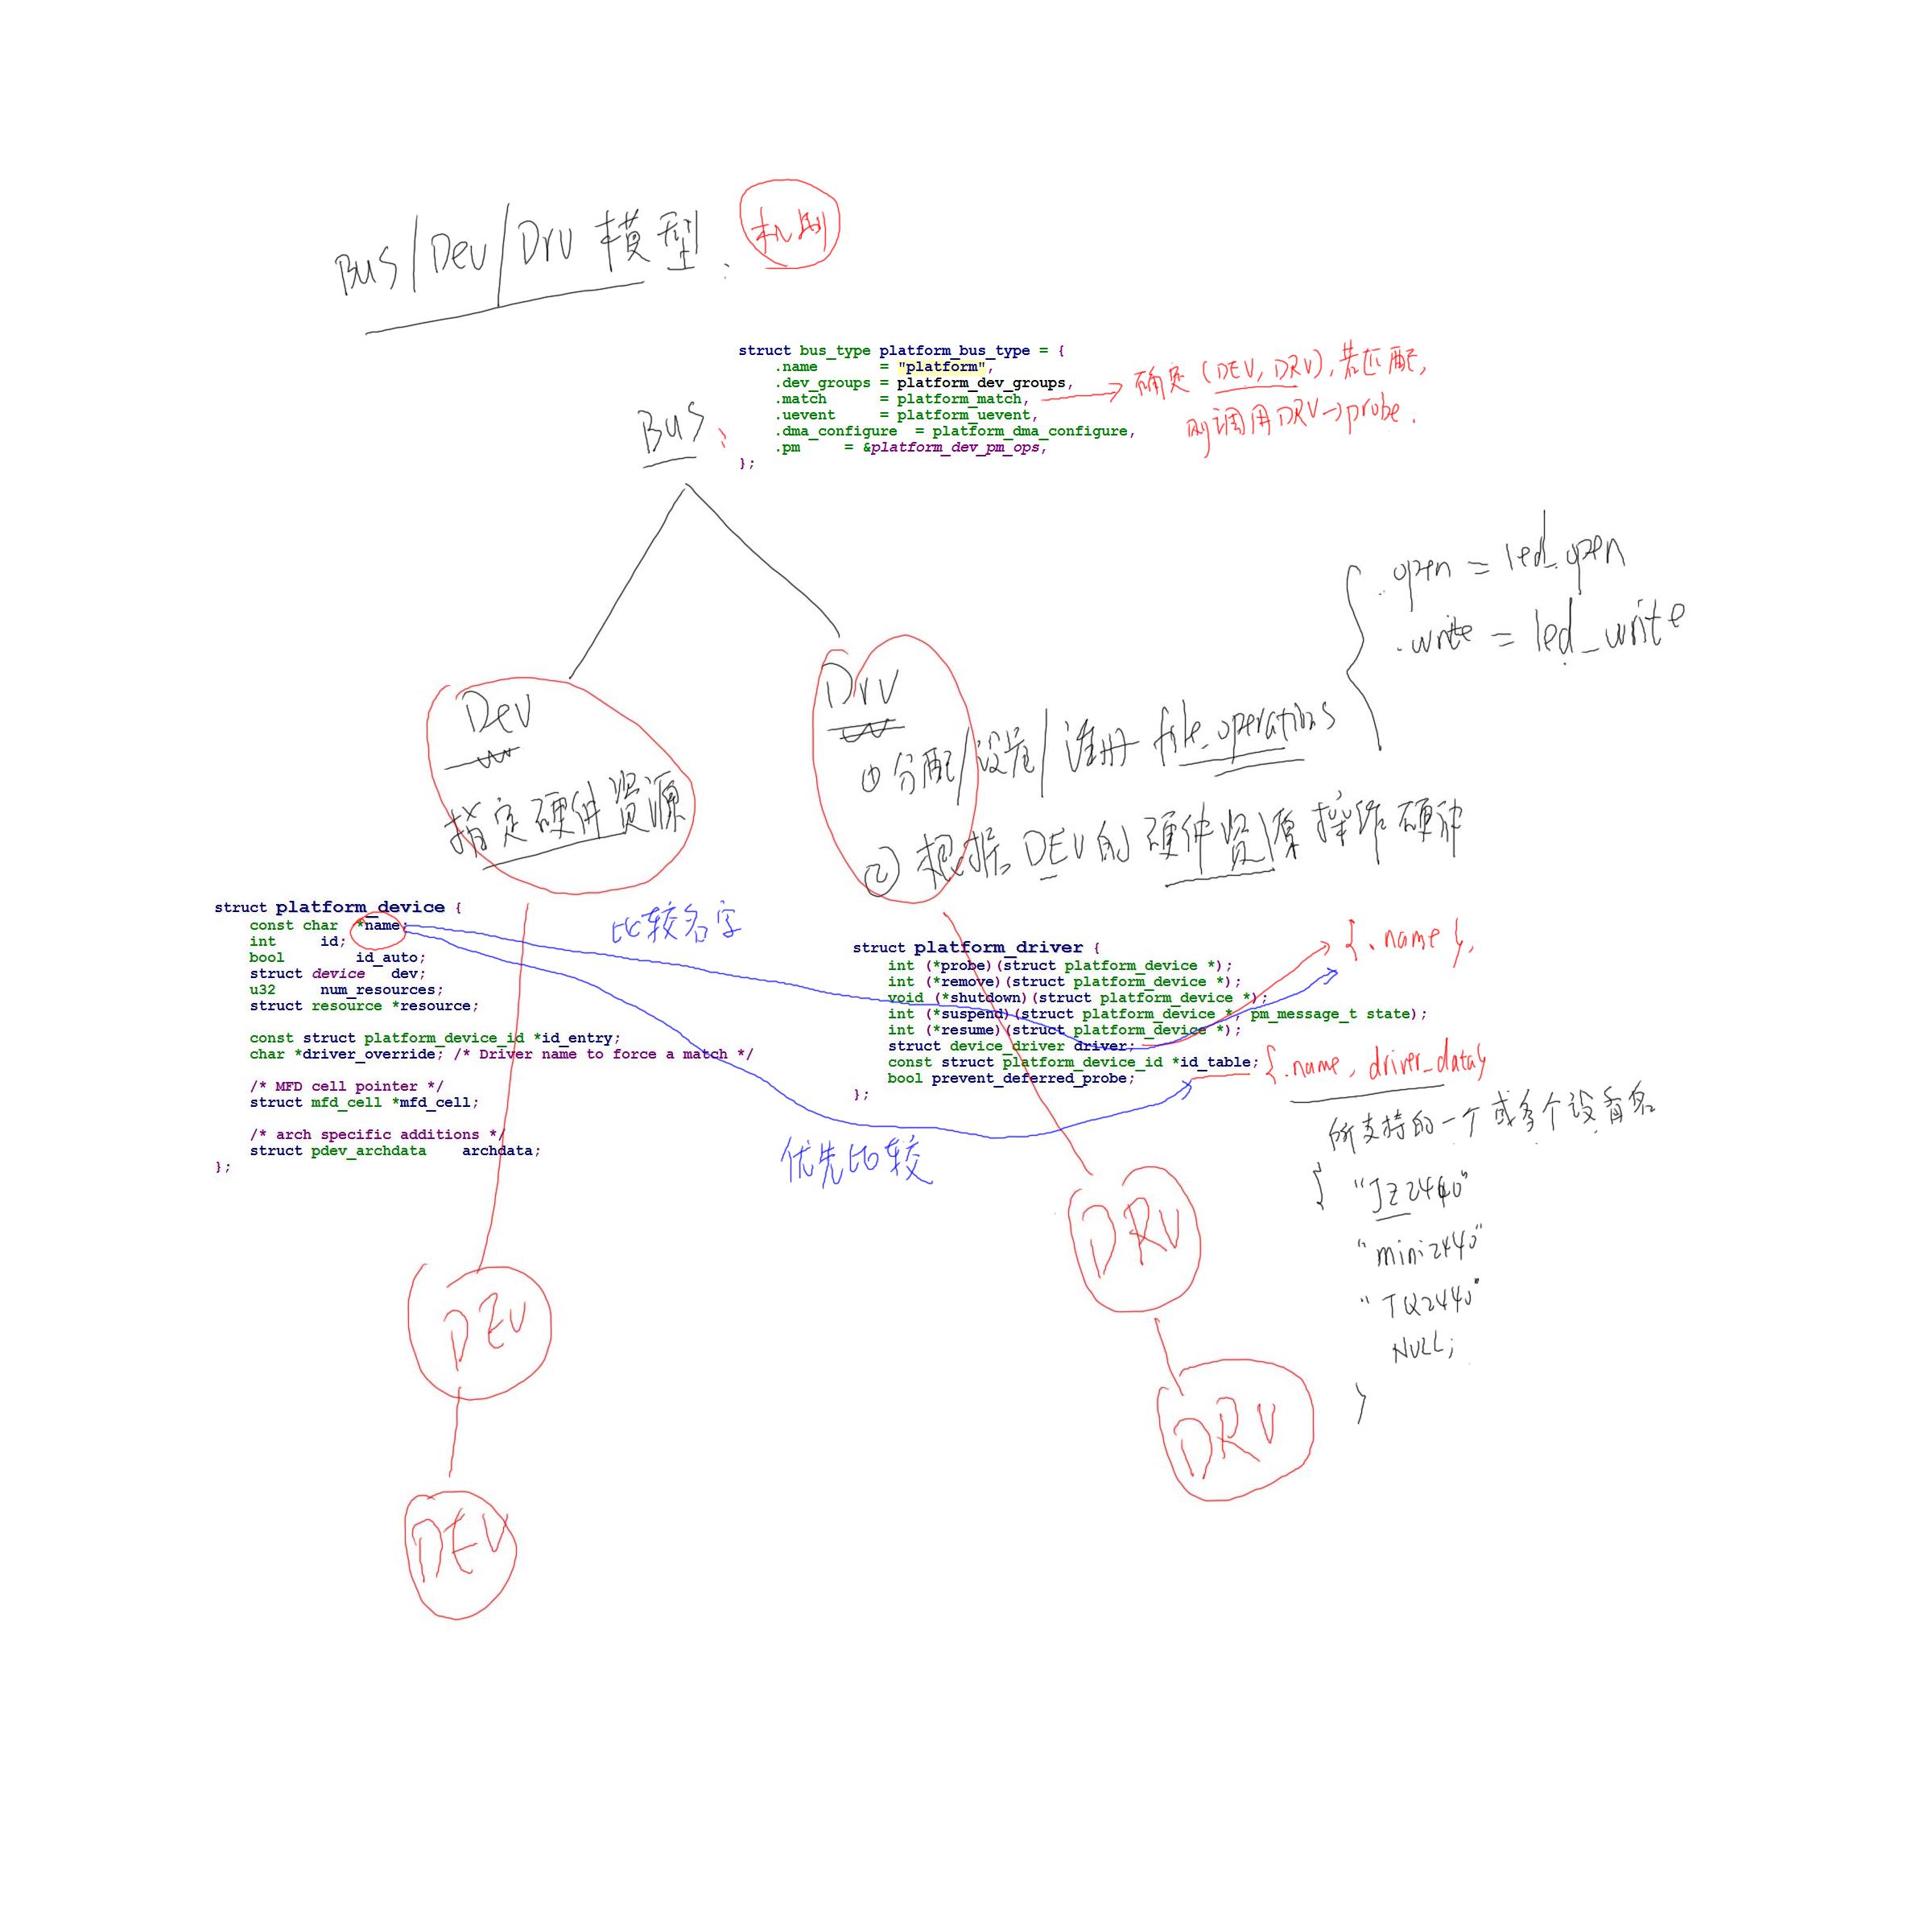 Bus/Dev/Drv 模型:
机制
struct bus_type platform_bus_type = {
.name = "platform",
.dev_groups = platform_dev_groups,
.match = platform_match,
.uevent = platform_uevent,
.dma_configure = platform_dma_configure,
.pm = &platform_dev_pm_ops,
};
确定(DEV, DRV),若匹配,
则调用DRV->probe.
Bus:
.open = led_open
.write = led_write
Dev
指定硬件资源
Drv
①分配/设置/注册 file_operations
②根据DEV的硬件资源操作硬件
struct platform_device {
const char *name;
int id;
bool id_auto;
struct device dev;
u32 num_resources;
struct resource *resource;
const struct platform_device_id *id_entry;
char *driver_override; /* Driver name to force a match */
/* MFD cell pointer */
struct mfd_cell *mfd_cell;
/* arch specific additions */
struct pdev_archdata archdata;
};
比较名字
优先比较
struct platform_driver {
int (*probe)(struct platform_device *);
int (*remove)(struct platform_device *);
void (*shutdown)(struct platform_device *);
int (*suspend)(struct platform_device *, pm_message_t state);
int (*resume)(struct platform_device *);
struct device_driver driver;
const struct platform_device_id *id_table;
bool prevent_deferred_probe;
};
{.name},
{.name, driver_data}
所支持的一个或多个设备名
{ "JZ2440"
"mini2440"
"TQ2440"
NULL;
}
DEV
DEV
DRV
DRV